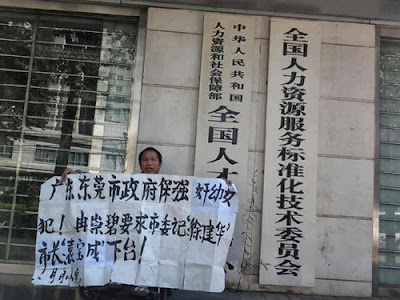 中华人民共和国
人力资源和社会保障部
全国人才
全国人力资源服务标准化技术委员会
广东东莞市政府保强奸幼女
犯！冉崇碧要求市委记“徐建华”
市长“袁宝成”下台！